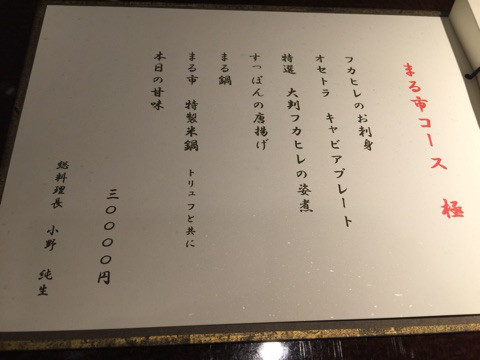 まる市コース 極
フカヒレのお刺身
オセトラ キャビアプレート
特選 大判フカヒレの姿煮
すっぽんの唐揚げ
まる鍋
まる市 特製米鍋 トリュフと共に
本日の甘味
三〇〇〇〇円
総料理長 小野 純生